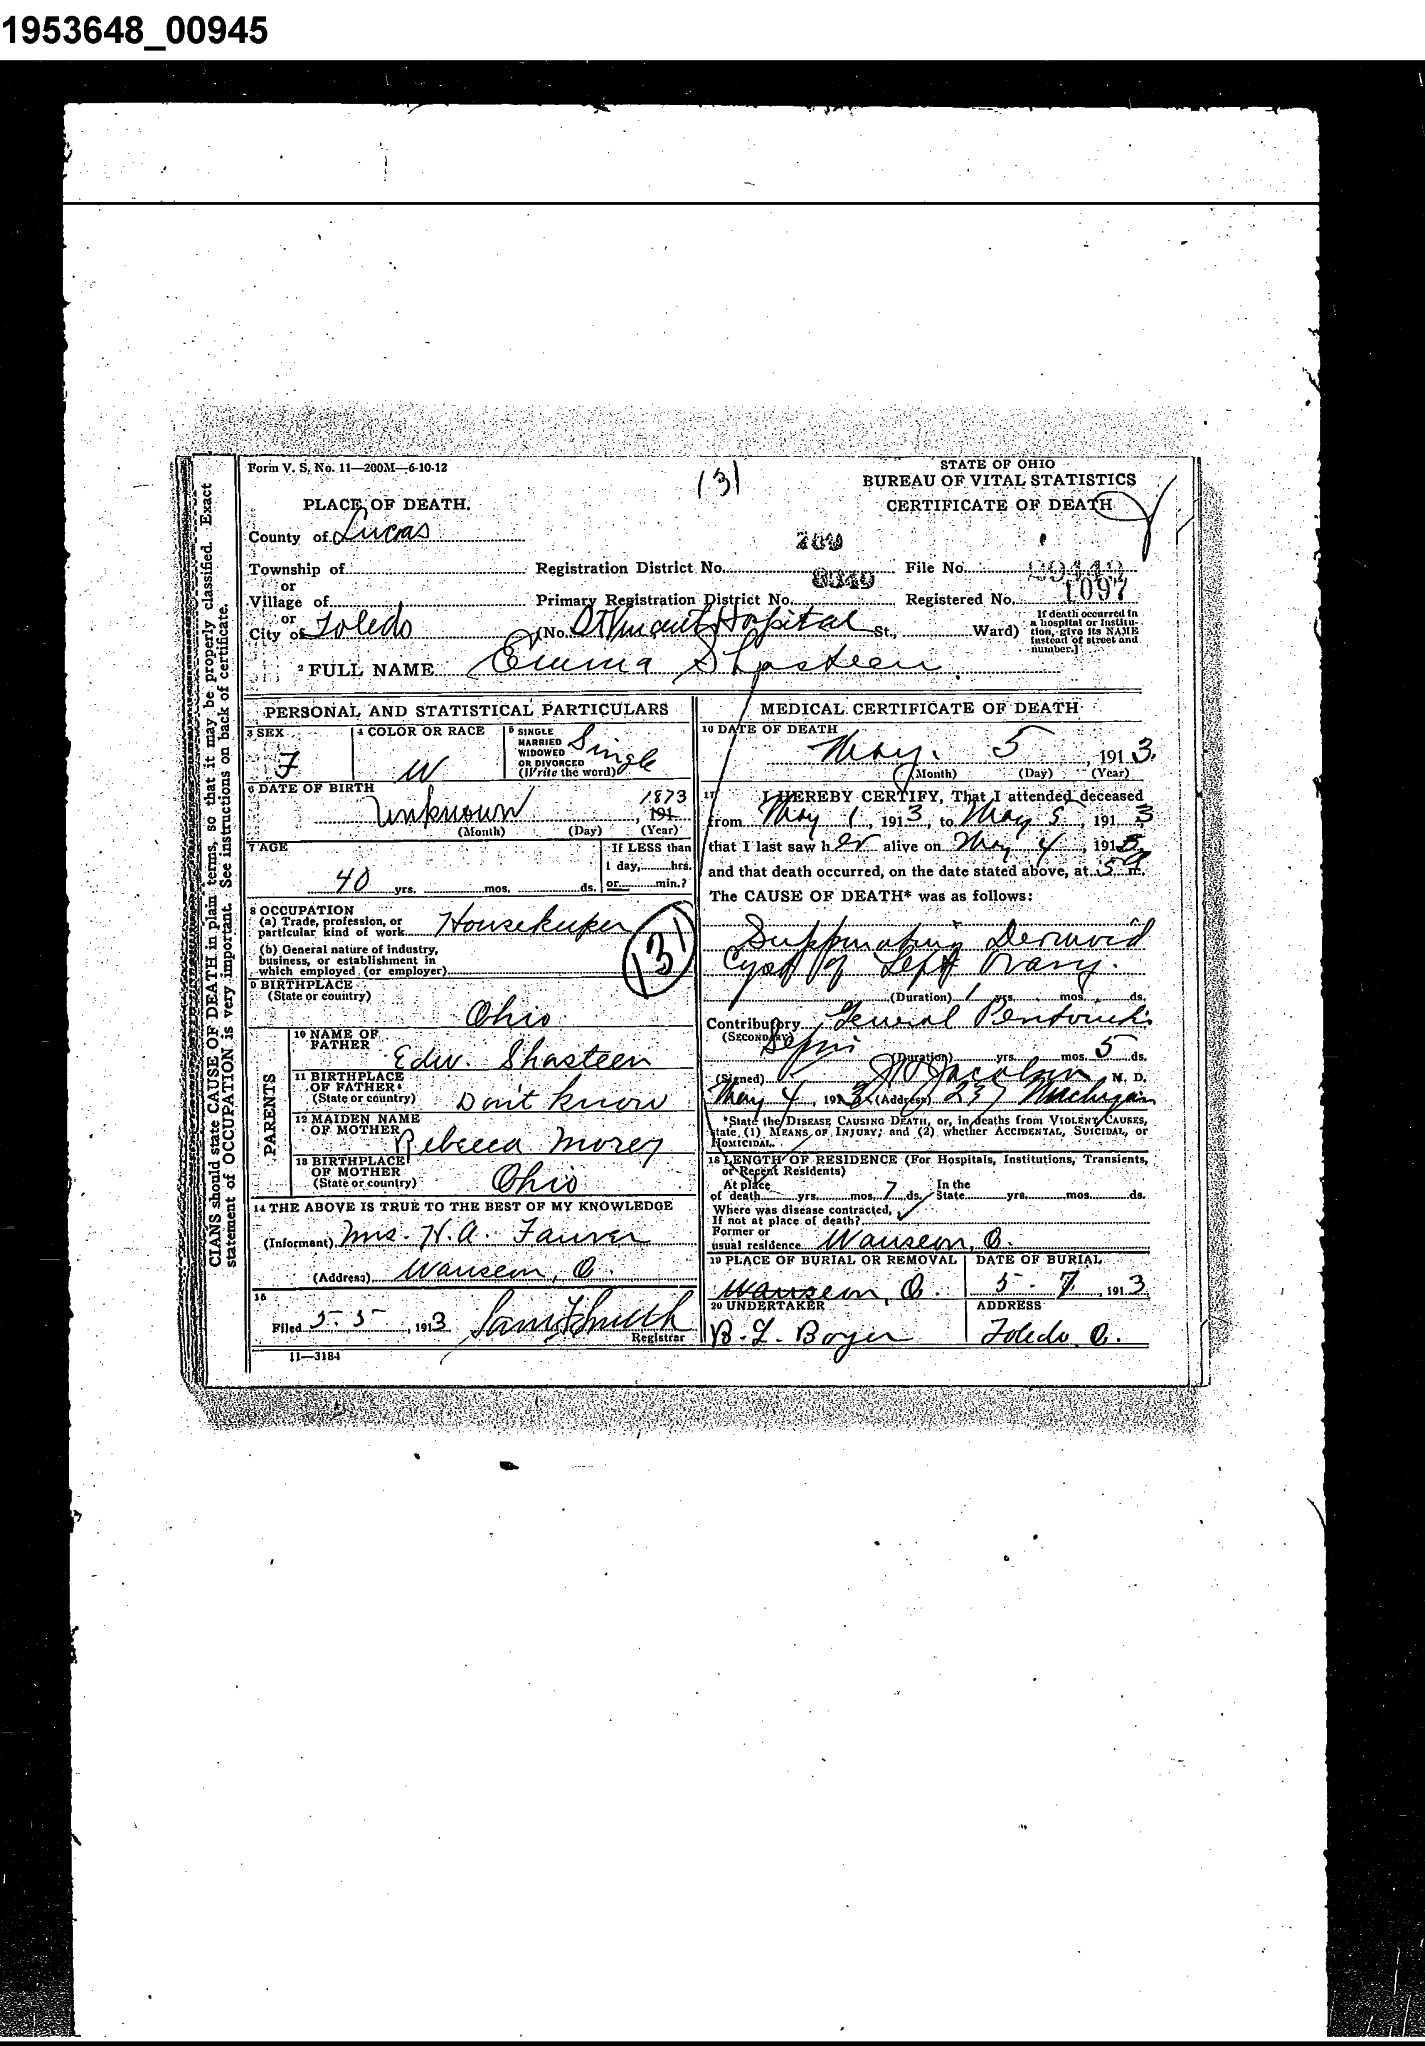 1953648_00945
Form V. S. No. 11—200M—6-10-12
131
STATE OF OHIO
BUREAU OF VITAL STATISTICS
CERTIFICATE OF DEATH
PLACE OF DEATH.
County of Lucas
Township of
or
Village of
or
City of Toledo
Registration District No. 769
File No. 29442
Primary Registration District No. 8349
Registered No. 1097
(No. Hospital St., Ward)
If death occurred in
a hospital or institu-
tion, give its NAME
instead of street and
number.]
2 FULL NAME Emma Shasteen
PERSONAL AND STATISTICAL PARTICULARS
3 SEX
F
4 COLOR OR RACE
W
5 SINGLE
MARRIED
WIDOWED
OR DIVORCED
(Write the word)
Single
6 DATE OF BIRTH
Unknown 1873
, 191
(Month) (Day) (Year)
7 AGE
40 yrs. mos. ds.
If LESS than
1 day, hrs.
or min.?
8 OCCUPATION
(a) Trade, profession, or
particular kind of work Housekeeper
(b) General nature of industry,
business, or establishment in
which employed (or employer)
131
9 BIRTHPLACE
(State or country)
Ohio
PARENTS
10 NAME OF
FATHER
Edw. Shasteen
11 BIRTHPLACE
OF FATHER
(State or country)
Don't know
12 MAIDEN NAME
OF MOTHER
Rebecca Morey
13 BIRTHPLACE
OF MOTHER
(State or country)
Ohio
14 THE ABOVE IS TRUE TO THE BEST OF MY KNOWLEDGE
(Informant) Mrs. H. A. Fauver
(Address) Wauseon, O.
15
Filed 5-5, 1913
Registrar
11—3184
MEDICAL CERTIFICATE OF DEATH
16 DATE OF DEATH
May 5, 1913.
(Month) (Day) (Year)
17 I HEREBY CERTIFY, That I attended deceased
from May 1, 1913, to May 5, 1913
that I last saw her alive on May 4, 1913
and that death occurred, on the date stated above, at 5 a m.
The CAUSE OF DEATH* was as follows:
Suppurating Dermoid
Cyst of Left Ovary.
(Duration) 1 yrs. mos. ds.
Contributory General Peritonitis
(SECONDARY) Sepsis
(Duration) yrs. mos. 5 ds.
(Signed) Jacobson M. D.
May 4, 1913 (Address) 237 Michigan
*State the DISEASE CAUSING DEATH, or, in deaths from VIOLENT CAUSES,
state (1) MEANS OF INJURY; and (2) whether ACCIDENTAL, SUICIDAL, or
HOMICIDAL.
18 LENGTH OF RESIDENCE (For Hospitals, Institutions, Transients,
or Recent Residents)
At place
of death yrs. mos. 7 ds.
In the
State yrs. mos. ds.
Where was disease contracted,
If not at place of death?
Former or
usual residence Wauseon, O.
19 PLACE OF BURIAL OR REMOVAL
Wauseon, O.
DATE OF BURIAL
5-7, 1913
20 UNDERTAKER
B. F. Boyer
ADDRESS
Toledo O.
CIANS should state CAUSE OF DEATH in plain terms, so that it may be properly classified. Exact
statement of OCCUPATION is very important. See instructions on back of certificate.